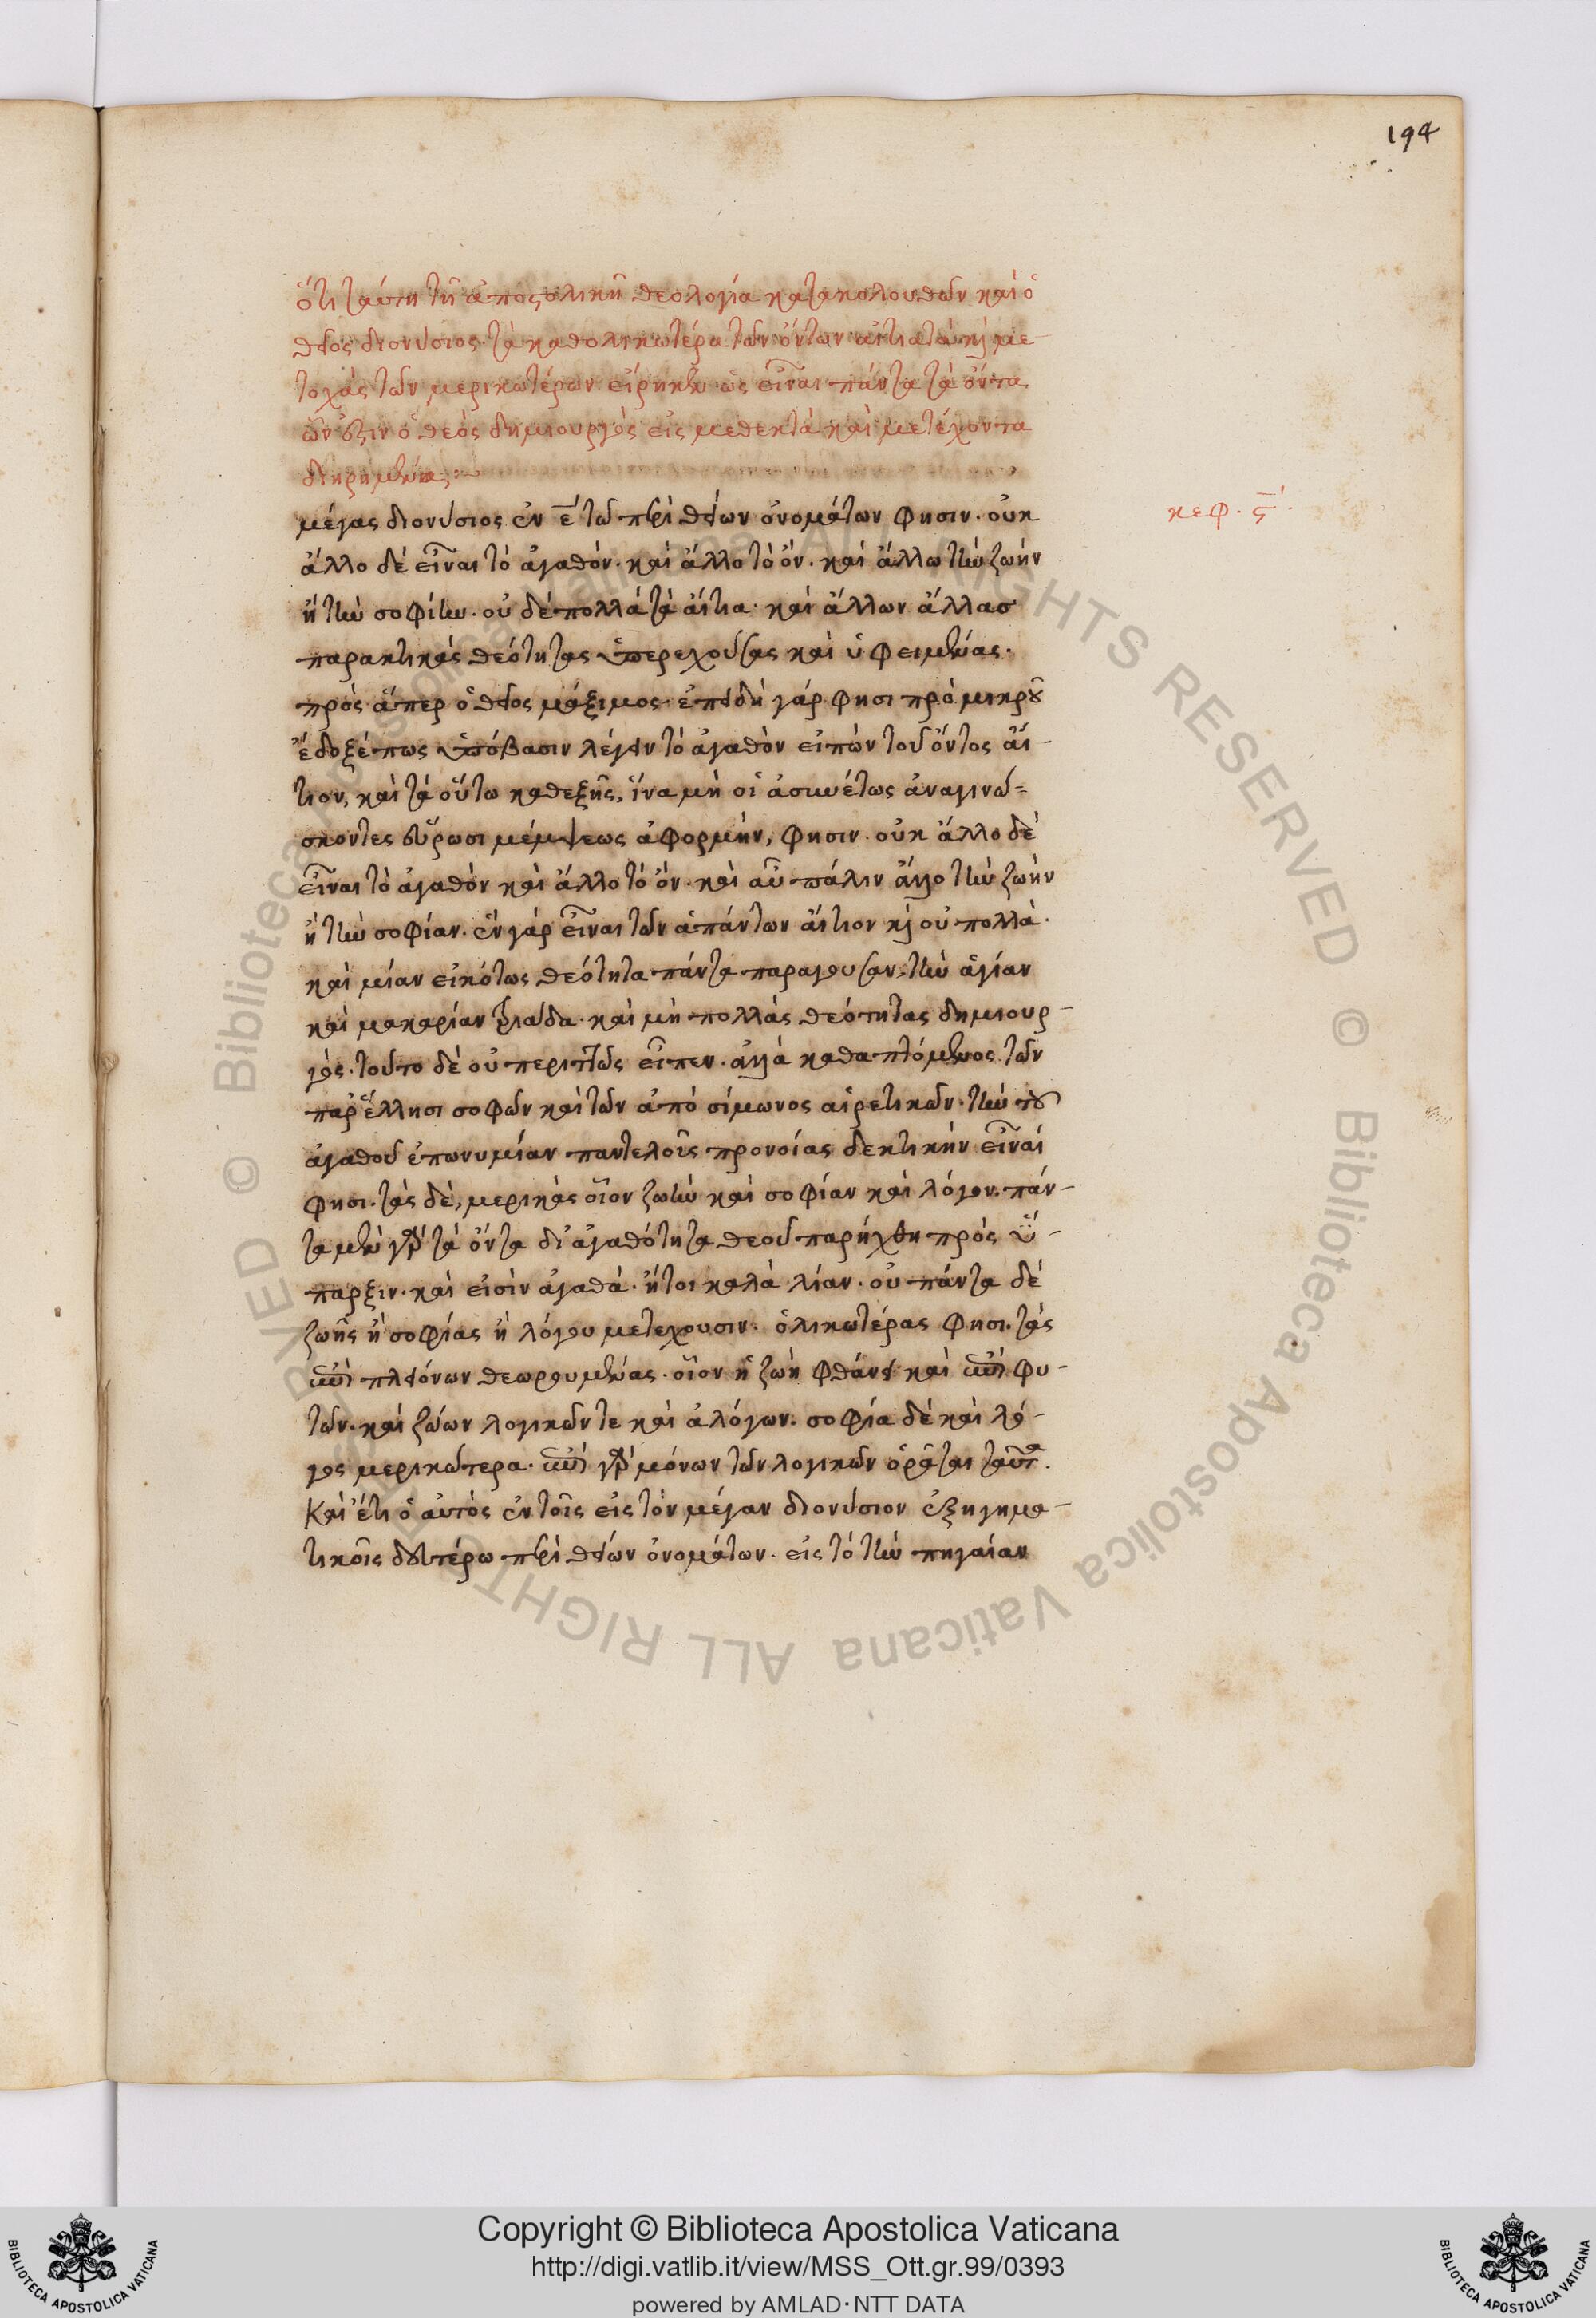 194
ὅτι ταύτη τῆ ἀποστολικῆ θεολογία κατακολουθῶν καὶ ὁ
θεῖος διονύσιος τὰ καθολικωτέρα τῶν ὄντων αἰτιατὰ κὶ με-
τοχὰς τῶν μερικωτέρων εἴρηκεν ὡς εἶναι πάντα τὰ ὄντα
ὧν ἐστιν ὁ θεὸς δημιουργὸς εἰς μεθεκτὰ καὶ μετέχοντα
διηρημένας:~
κεφ. ϛ´.
μέγας διονύσιος ἐν ε̄ τῶ περὶ θείων ὀνομάτων φησιν. οὐκ
ἄλλο δὲ εἶναι τὸ ἀγαθόν. καὶ ἄλλο τὸ ὄν. καὶ ἄλλω τὴν ζωήν
ἢ τὴν σοφίην. οὐ δὲ πολλὰ τὰ αἴτια. καὶ ἄλλων ἄλλας
παρακτικὰς θεότητας ὑπερεχούσας καὶ ὑφειμένας.
πρὸς ἅπερ ὁ θεῖος μάξιμος. ἐπειδὴ γάρ φησι πρὸ μικροῦ
ἔδοξέ πως ὑπόβασιν λέγειν τὸ ἀγαθὸν εἰπὼν τοῦ ὄντος αἴ-
τιον, καὶ τὰ οὕτω καθεξῆς, ἵνα μὴ οἱ ἀσυνέτως ἀναγινώ=
σκοντες εὕρωσι μέμψεως ἀφορμήν, φησιν. οὐκ ἄλλο δὲ
εἶναι τὸ ἀγαθὸν καὶ ἄλλο τὸ ὄν. καὶ αὖ πάλιν ἄλλο τὴν ζωήν
ἢ τὴν σοφίαν. ἓν γάρ εἶναι τῶν ἁπάντων αἴτιον κὶ οὐ πολλὰ.
καὶ μίαν εἰκότως θεότητα πάντα παραγουσαν, τὴν ἁγίαν
καὶ μακαρίαν τριάδα. καὶ μὴ πολλὰς θεότητας δημιουρ-
γὸς. τοῦτο δὲ οὐ περιττῶς εἶπεν. ἀλλὰ καθαπτόμενος τῶν
παρ' ἕλλησι σοφῶν καὶ τῶν ἀπὸ σίμωνος αἱρετικῶν. τὴν τοῦ
ἀγαθοῦ ἐπωνυμίαν παντελοῖς προνοίας δεκτικὴν εἶναί
φησι. τὰς δέ, μερικὰς οἷον ζωὴν καὶ σοφίαν καὶ λόγον. πάν-
τα μὲν γὰρ τὰ ὄντα δι' ἀγαθότητα θεοῦ παρήχθη πρὸς ὕ-
παρξιν. καὶ εἰσὶν ἀγαθὰ. ἤτοι καλὰ λίαν. οὐ πάντα δὲ
ζωῆς ἢ σοφίας ἢ λόγου μετεχουσιν. ὁλικωτέρας φησι. τὰς
ἐπὶ πλειόνων θεωρουμένας. οἷον ἡ ζωὴ φθάνει καὶ ἐπὶ φυ-
τῶν. καὶ ζώων λογικῶν τε καὶ ἀλόγων. σοφία δὲ καὶ λό-
γος μερικώτερα. ἐπὶ γὰρ μόνων τῶν λογικῶν ὁρᾶται ταῦτα.
Καὶ ἔτι ὁ αὐτὸς ἐν τοῖς εἰς τὸν μέγαν διονύσιον ἐξηγημα-
τικοῖς δευτέρω περὶ θείων ὀνομάτων. εἰς τὸ τὴν πηγαίαν
Copyright © Biblioteca Apostolica Vaticana
http://digi.vatlib.it/view/MSS_Ott.gr.99/0393
powered by AMLAD·NTT DATA